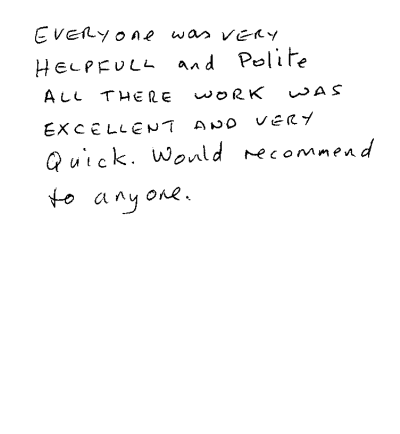 EVERYone was VERY
HELPFULL and Polite
ALL THERE WORK WAS
EXCELLENT AND VERY
Quick. Would recommend
to anyone.